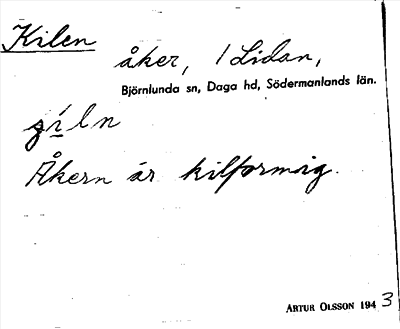 Kilen
åker, / Lidan,
Björnlunda sn, Daga hd, Södermanlands län.
Åkern är kilformig.
ARTUR OLSSON 1943